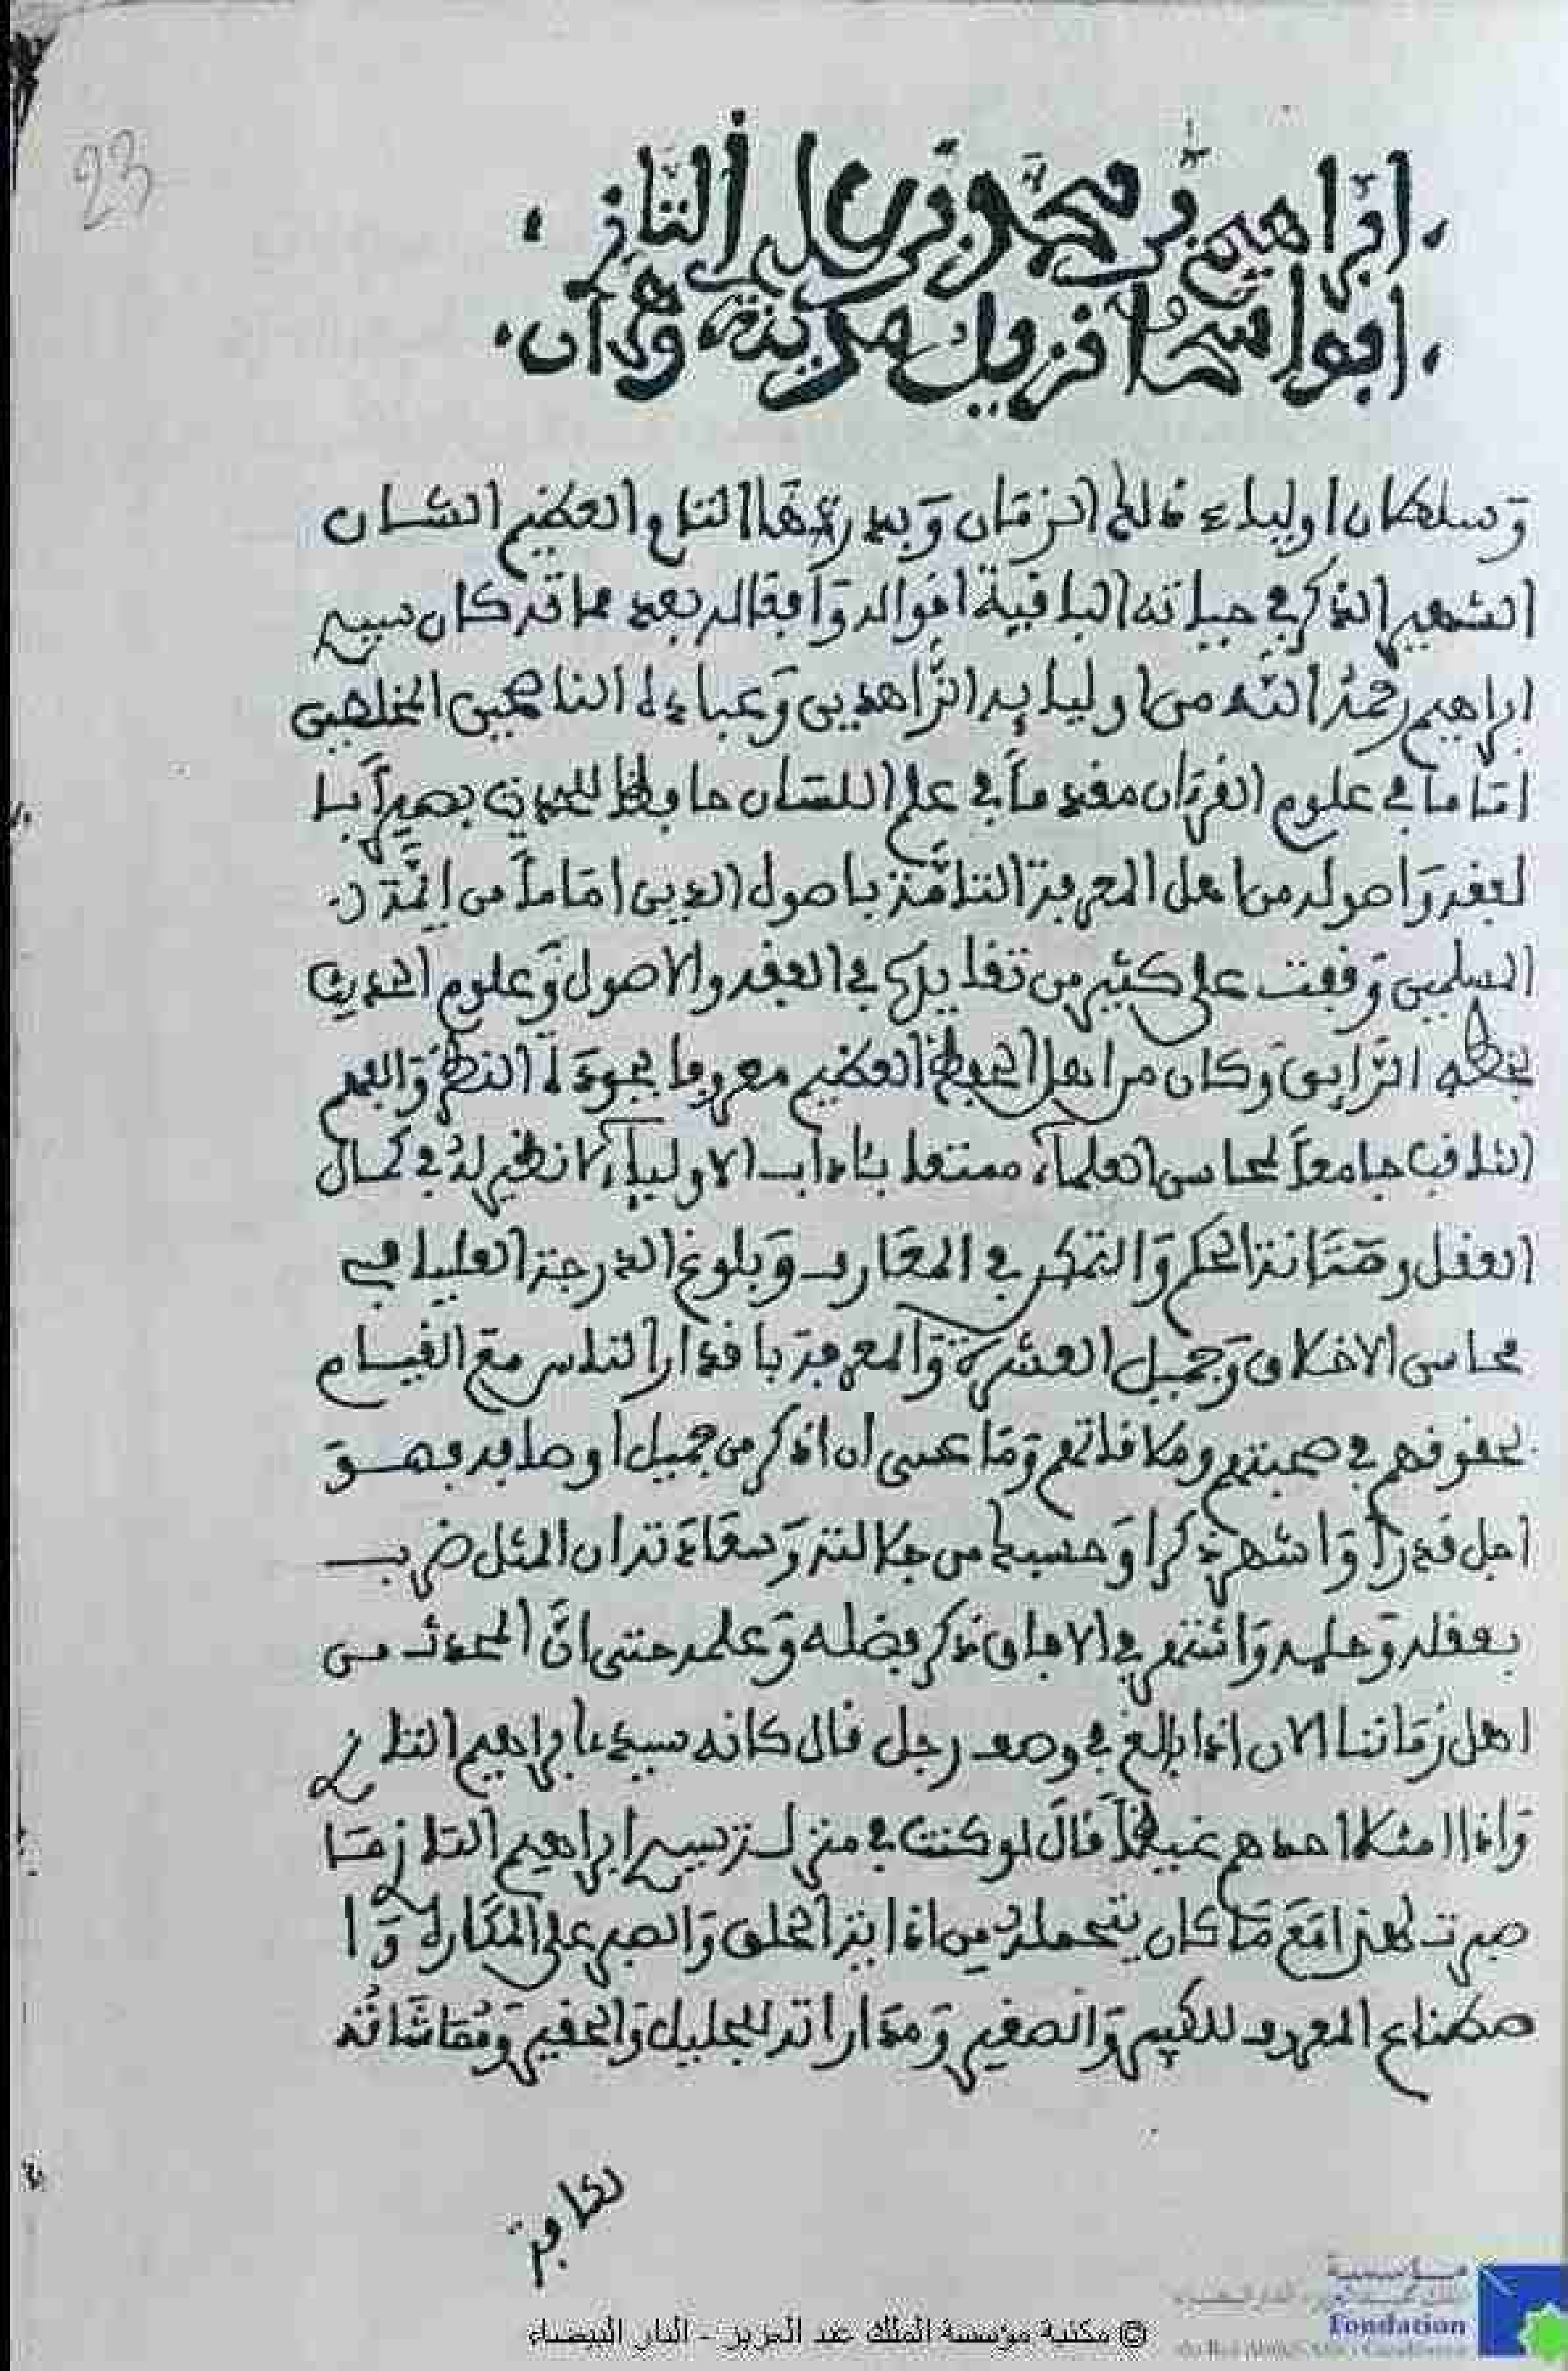 23
ابراهيم بن محمد بن علي التازي
ابو اسحاق نزيل مدينة وهران
وسلطان اولياء ذلك الزمان وبدر تمها التام العظيم الشان
الشهير الذكر في حياته الباقية اقواله وافعاله بعد مماته كان سيدي
ابراهيم رحمه الله من اوليايه الزاهدين وعباده الناصحين المخلصين
اماما في علوم القرءان مقدما في علم اللسان حافظا للحديث بصيرا با
لفقه واصوله من اهل المعرفة التامة باصول الدين اماما من ايمة
المسلمين وقفت على كثير من تقاييده في الفقه والاصول وعلوم الحديث
بخطه الرايق وكان من اهل الحفظ العظيم معروفا بجودة النظر والفهم
الثاقب جامعا لمحاسن العلماء ممتعا بئاداب الاولياء لا نظير له في كمال
العقل ومتانة الحلم والتمكن في المعارف وبلوغ الدرجة العليا في
محاسن الاخلاق وجميل العشرة والمعرفة باقدار الناس مع القيام
بحقوقهم في صحبتهم وملاقاتهم وما عسى ان اذكر من جميل اوصافه فهو
اجل قدرا واشهر ذكرا وحسبك من جلالته وسعادته ان المثل ضرب
بعقله وحلمه واشتهر في الافاق ذكر فضله وعلمه حتى ان المحدث من
اهل زماننا الان اذا بالغ في وصف رجل قال كانه سيدي ابراهيم التازي
واذا امتلا احدهم غيظا قال لو كنت في منزلة سيدي ابراهيم التازي ما
صبرت لهذا مع ما كان يتحمله من اذاية الخلق والصبر على المكاره وا
صطناع المعروف للكبير والصغير ومداراته للجليل والحقير
© مكتبة مؤسسة الملك عبد العزيز - الدار البيضاء
مؤسسة
Fondation